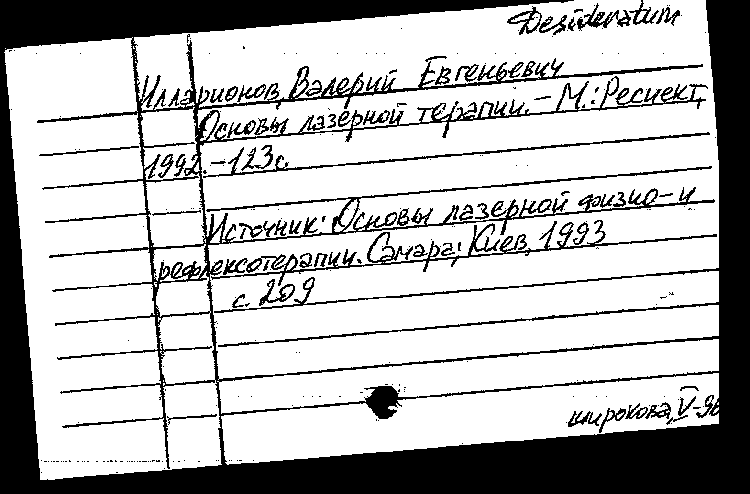 Desideratum
Илларионов, Валерий Евгеньевич
Основы лазерной терапии. – М.: Респект,
1992. – 123с.
Источник: Основы лазерной физио- и
рефлексотерапии. Самара; Киев, 1993
с. 209
Широкова, V-96